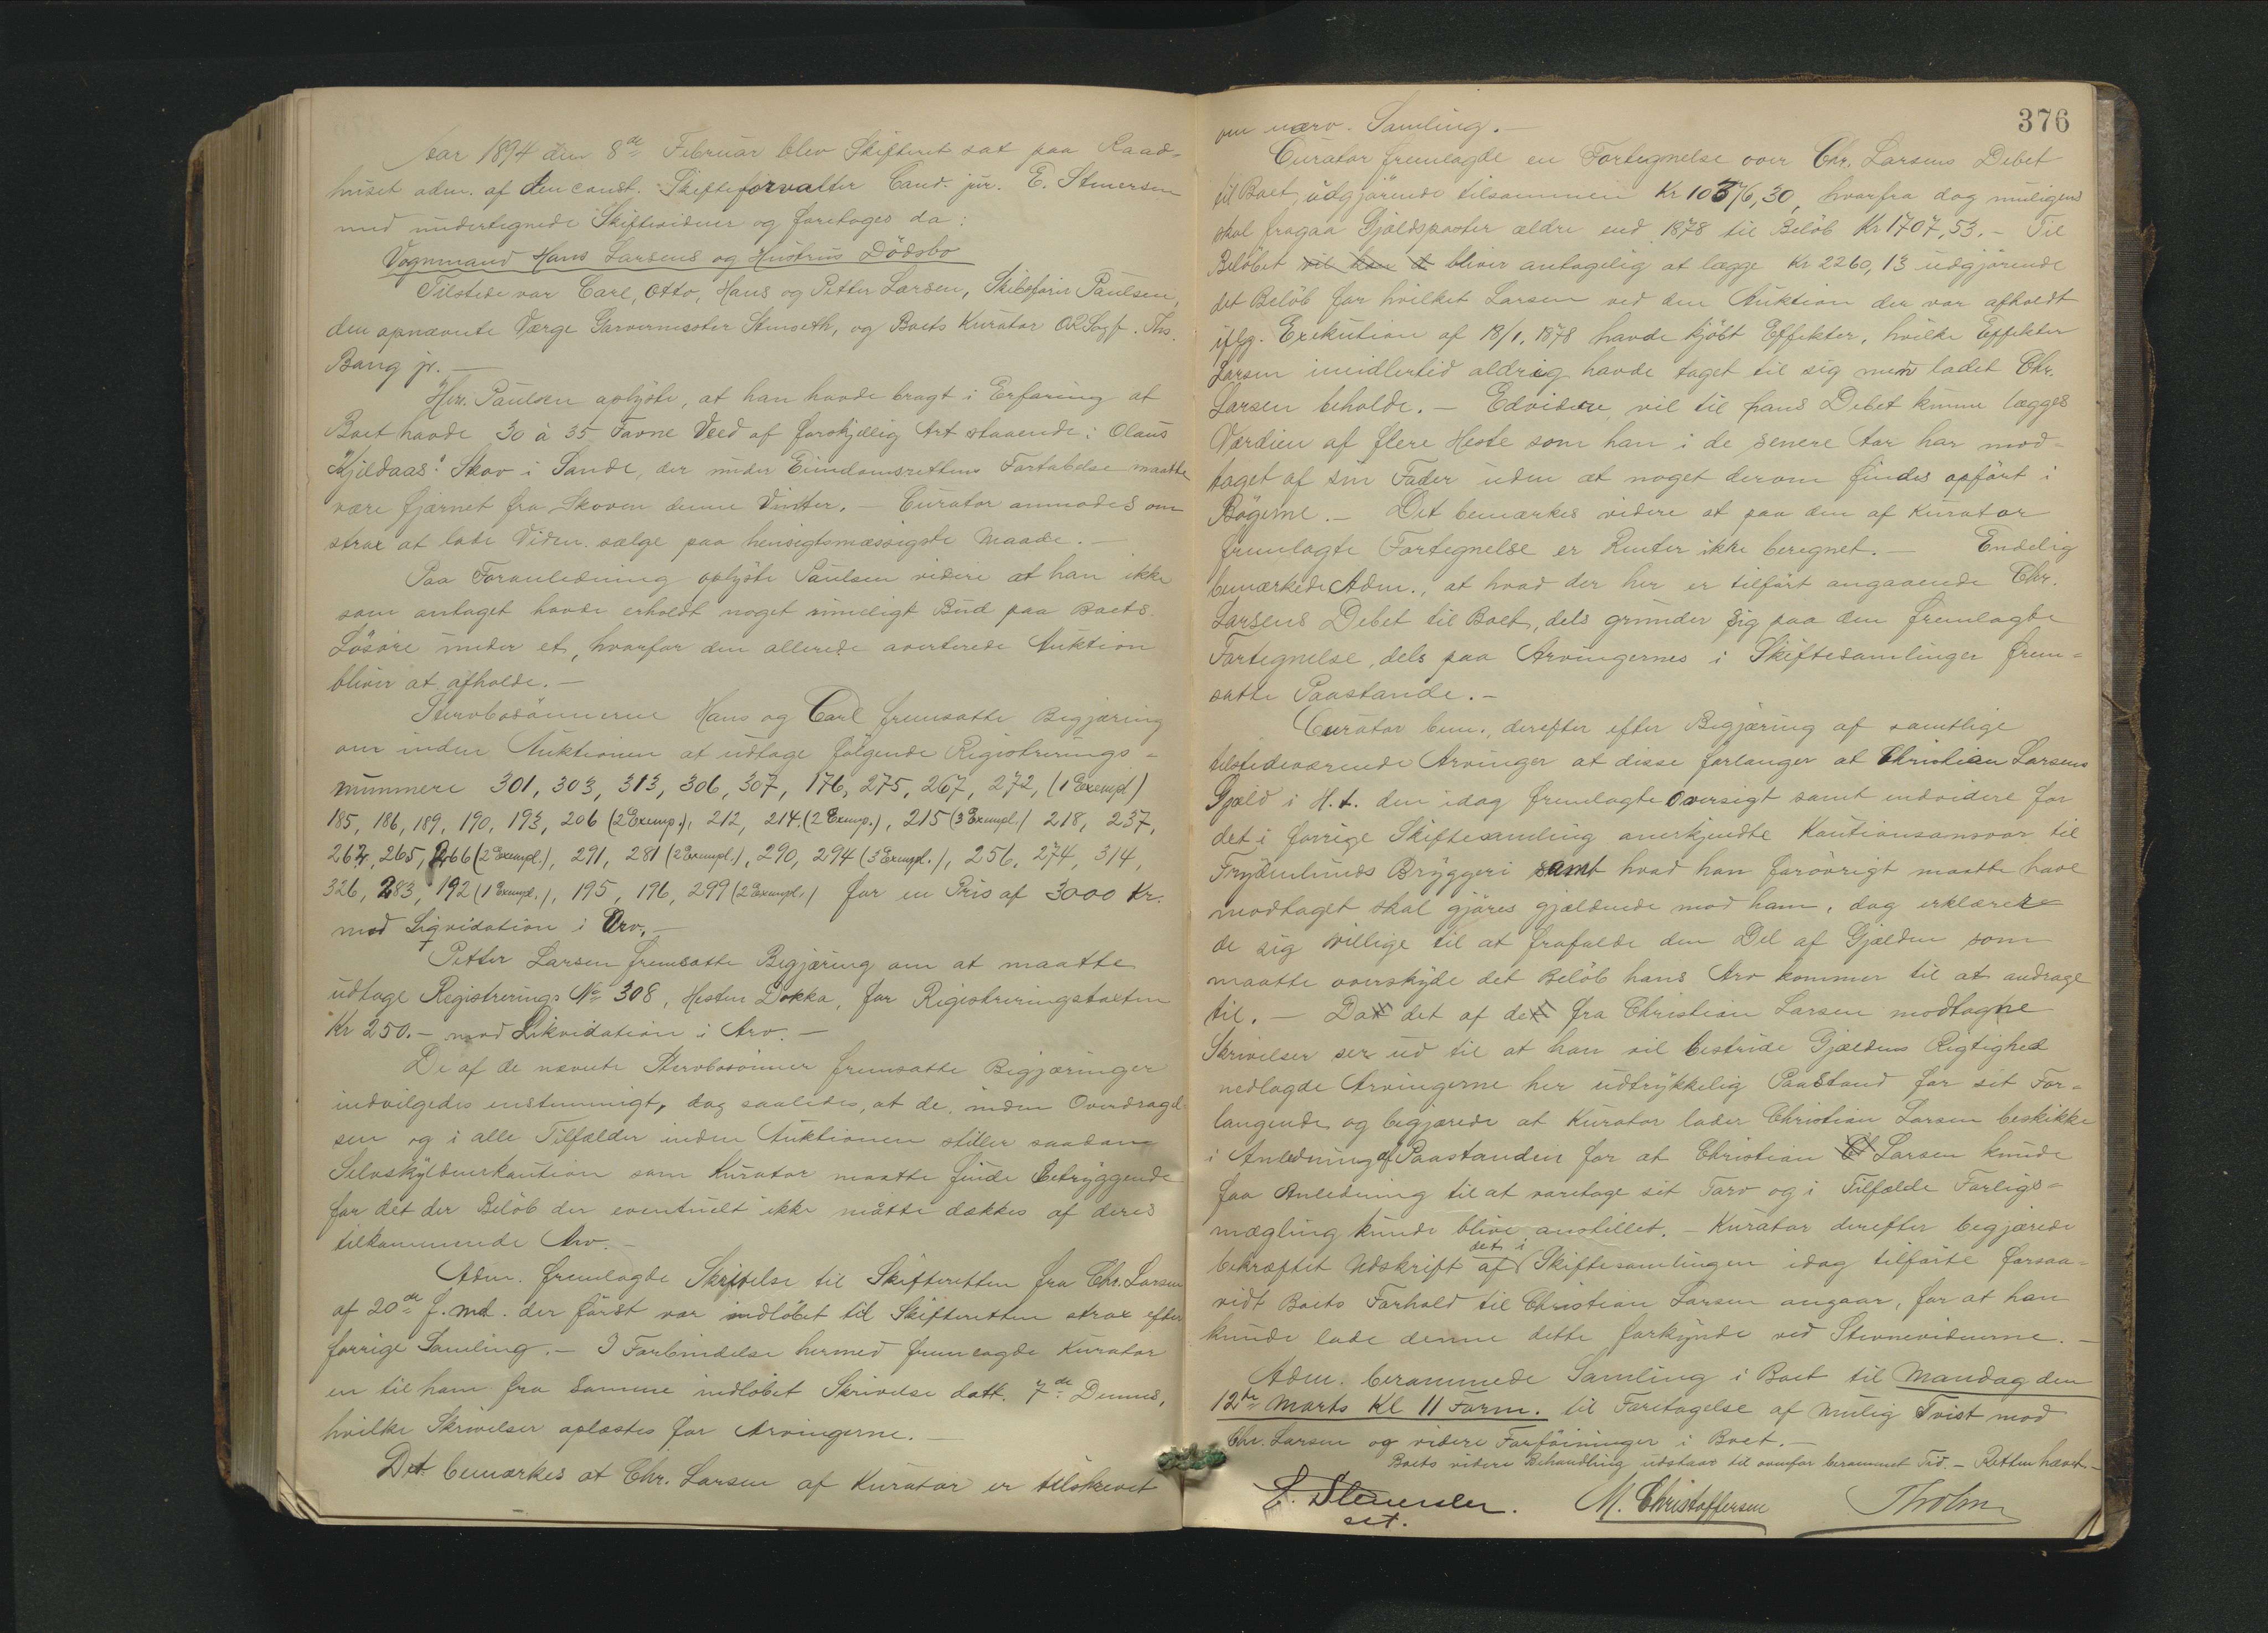 Aar 1894 den 8de Februar blev Skifteret sat paa Raad-
huset adm. af den const. Skifteforvalter Cand. jur. E. Stenersen
med undertegnede Skiftevidner og foretoges da:
Vognmand Hans Larsens og Hustrus Dödsbo
Tilstede var Carl, Otto, Hans og Petter Larsen, Skibsförer Paulsen,
den opnævnte Værge Garvermester Stenseth, og Boets Kurator ORSagf. Ths.
Bang jr. —
Hr. Paulsen oplyste, at han havde bragt i Erfaring at
Boet havde 30 à 35 Favne Veed af forskjellig Art staaende i Olaus
"Kjeldaas" Skov i Sande, der under Eiendomsrettens Fortabelse maatte
være fjærnet fra Skoven denne Vinter. — Curator anmodes om
strax at lade Veden sælge paa hensigtsmæssigste Maade. —
Paa Foranledning oplyste Paulsen videre at han ikke
som antaget havde erholdt noget rimeligt Bud paa Boets
Lösöre under et, hvorfor den allerede averterede Auktion
bliver at afholde. —
Stervbosönnerne Hans og Carl fremsatte Begjæring
om inden Auktionen at udtage fölgende Registrerings-
nummere 301, 303, 313, 306, 307, 176, 275, 267, 272, (1 Exempl)
185, 186, 189, 190, 193, 206 (2 Exemp.), 212, 214 (2 Exemp.), 215 (3 Exempl.) 218, 237,
264, 265, 266 (2 Exempl.), 291, 281 (2 Exempl.), 290, 294 (3 Exempl.), 256, 274, 314,
326, 283, 192 (1 Exempl.), 195, 196, 299 (2 Exempl.) for en Pris af 3000 Kr.
mod Liqvidation i Arv. —
Petter Larsen fremsatte Begjæring om at maatte
udtage Registrerings No 308, Hesten Dokka, for Registreringstaxten
Kr 250. — mod Likvidation i Arv. —
De af de nævnte Stervbosönner fremsatte Begjæringer
indvilgedes enstemmigt, dog saaledes, at de inden Overdragel-
sen og i alle Tilfælder inden Auktionen stiller saadan
Selvskyldnerkaution som Kurator maatte finde betryggende
for det der Belöb der eventuelt ikke måtte dækkes af deres
tilkommende Arv. —
Adm. fremlagde Skrivelse til Skifteretten fra Chr. Larsen
af 20de f. md. der först var indlöbet til Skifteretten strax efter
forrige Samling. — I Forbindelse hermed fremlagde Kurator
en til ham fra Samme indlöbet Skrivelse datt. 7de Dennes,
hvilke Skrivelser oplæstes for Arvingerne. —
Det bemærkes at Chr. Larsen af Kurator er tilskrevet
376
om nærv. Samling. —
Curator fremlagde en Fortegnelse over Chr. Larsens Debet
til Boet, udgjörende tilsammen Kr 10376,30, hvorfra dog muligens
skal fragaa Gjældsposter ældre end 1878 til Belöb Kr 1707,53. — Til
Belöbet vil han d bliver antagelig at lægge Kr 2260,13 udgjörende
det Belöb for hvilket Larsen ved den Auktion der var afholdt
iflg. Exekution af 18/1, 1878 havde kjöbt Effekter, hvilke Effekter
Larsen imidlertid aldrig havde taget til sig men ladet Chr.
Larsen beholde. — Edvidere vil til hans Debet kunne lægges
Værdien af flere Heste som han i de senere Aar har mod-
taget af sin Fader uden at noget derom findes opfört i
Bögerne. — Det bemærkes videre at paa den af Kurator
fremlagte Fortegnelse er Renter ikke beregnet. — Endelig
bemærkede Adm., at hvad der her er tilfört angaaende Chr.
Larsens Debet til Boet, dels grunder sig paa den fremlagte
Fortegnelse, dels paa Arvingernes i Skiftesamlinger frem-
satte Paastande. —
Curator bem., derefter efter Begjæring af samtlige
tilstedeværende Arvinger at disse forlanger at Christian Larsens
Gjæld i H. t. den idag fremlagte Oversigt samt endvidere for
det i forrige Skiftesamling anerkjendte Kautionsansvar til
Frydenlunds Bryggeri samt hvad han forövrigt maatte have
modtaget skal gjöres gjældende mod ham, dog erklærer
de sig villige til at frafalde den Del af Gjælden som
maatte overskyde det Belöb hans Arv kommer til at andrage
til. — Da det af de fra Christian Larsen modtagne
Skrivelser ser ud til at han vil bestride Gjældens Rigtighed
nedlagde Arvingerne her udtrykkelig Paastand for sit For-
langende og begjærede at Kurator lader Christian Larsen beskikke
i Anledning af Paastanden for at Christian Larsen kunde
faa Anledning til at varetage sit Tarv og i Tilfælde Forligs-
mægling kunde blive anstillet. — Kurator derefter begjærede
bekræftet Udskrift af det i Skiftesamlingen idag tilförte forsaa-
vidt Boets Forhold til Christian Larsen angaar, for at han
kunde lade denne dette forkynde ved Stevnevidnerne. —
Adm. berammede Samling i Boet til Mandag den
12te Marts Kl 11 Form. til Foretagelse af mulig Tvist mod
Chr. Larsen og videre Forföininger i Boet. —
Boets videre Behandling udstaar til ovenfor berammet Tid. — Retten hævet. —
E. Stenersen. M. Christoffersen Tholm
cst.